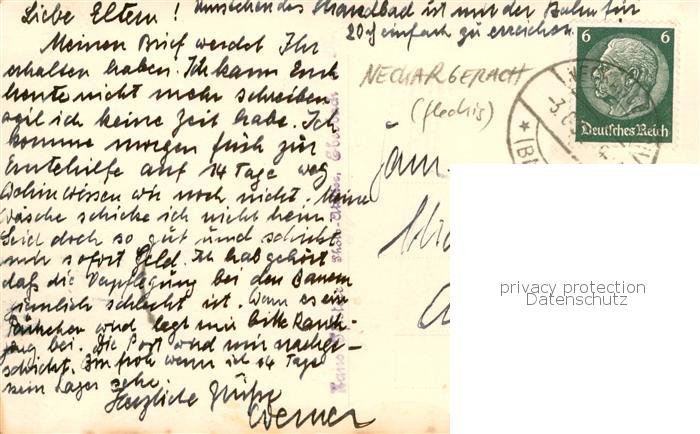 Liebe Eltern! Umstehendes Strandbad ist mit der Bahn für
20 ₰ einfach zu erreichen.
Meinen Brief werdet Ihr
erhalten haben. Ich kann Euch
heute nicht mehr schreiben
weil ich keine Zeit habe. Ich
komme morgen früh zur
Erntehilfe auf 14 Tage weg
Wohin wissen wir noch nicht. Meine
Wäsche schicke ich nicht heim
Seid doch so gut und schickt
mir sofort Geld. Ich hab gehört
daß die Verpflegung bei den Bauern
ziemlich schlecht ist. Wenn es ein
Päckchen wird legt mir bitte
bei. Die Post wird mir nachge-
schickt. Bin froh wenn ich 14 Tage
kein Lager sehe.
Herzliche Grüße
Werner
NECKARGERACH
6 6
Deutsches Reich
privacy protection
Datenschutz